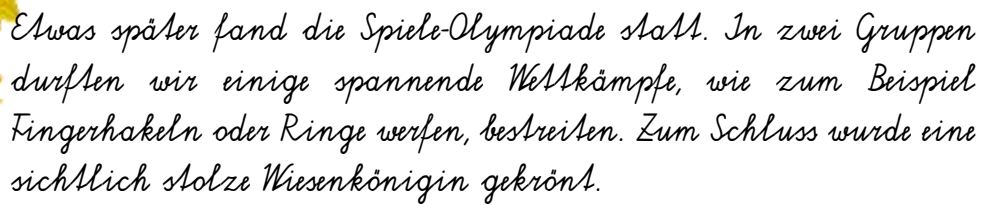 Etwas später fand die Spiele-Olympiade statt. In zwei Gruppen
durften wir einige spannende Wettkämpfe, wie zum Beispiel
Fingerhakeln oder Ringe werfen, bestreiten. Zum Schluss wurde eine
sichtlich stolze Wiesenkönigin gekrönt.